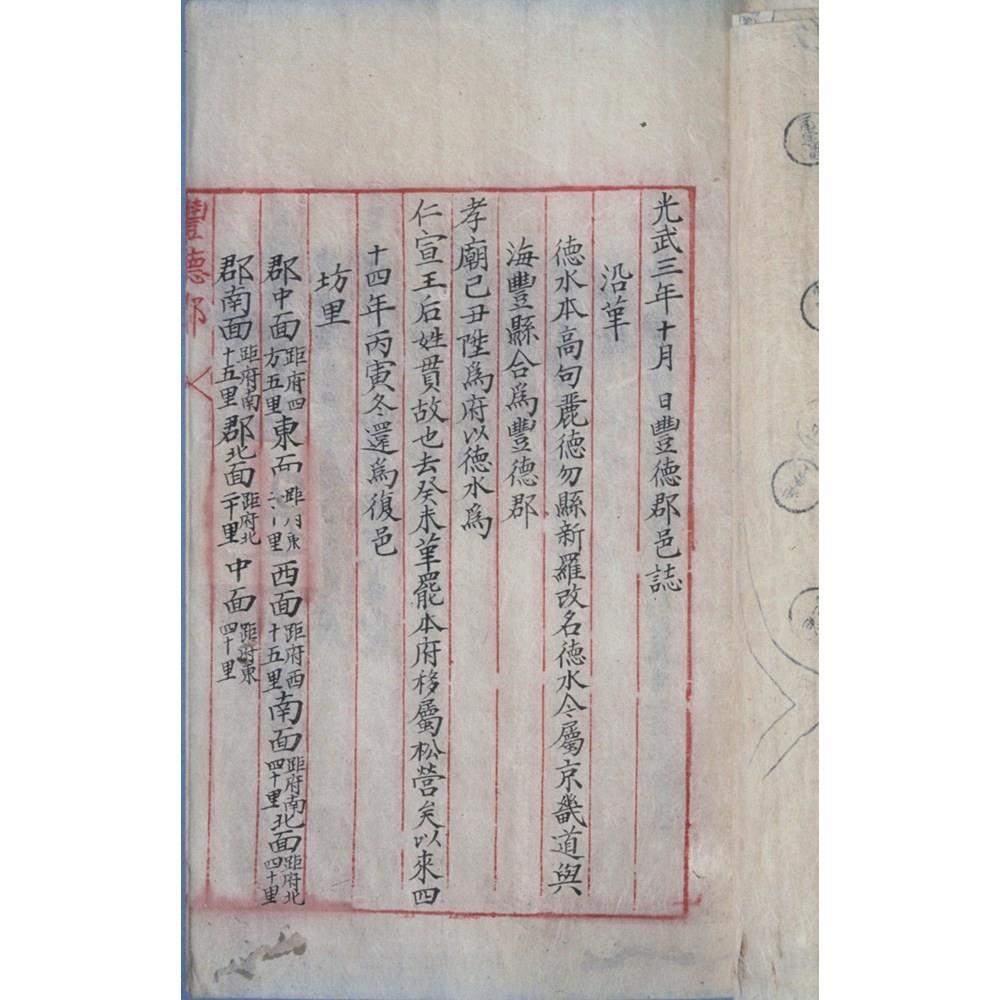 光武三年十月 日豐德郡邑誌
沿革
德水本高句麗德勿縣新羅改名德水今屬京畿道與
海豐縣合爲豐德郡
孝廟己丑陞爲府以德水爲
仁宣王后姓貫故也去癸未革罷本府移屬松營矣以來四
十四年丙寅冬還爲復邑
坊里
郡中面距府四方五里東面距府東里西面距府西十五里南面距府南四十里北面距府北四十里
郡南面距府南十五里郡北面距府北二十里中面距府東四十里
豐德郡